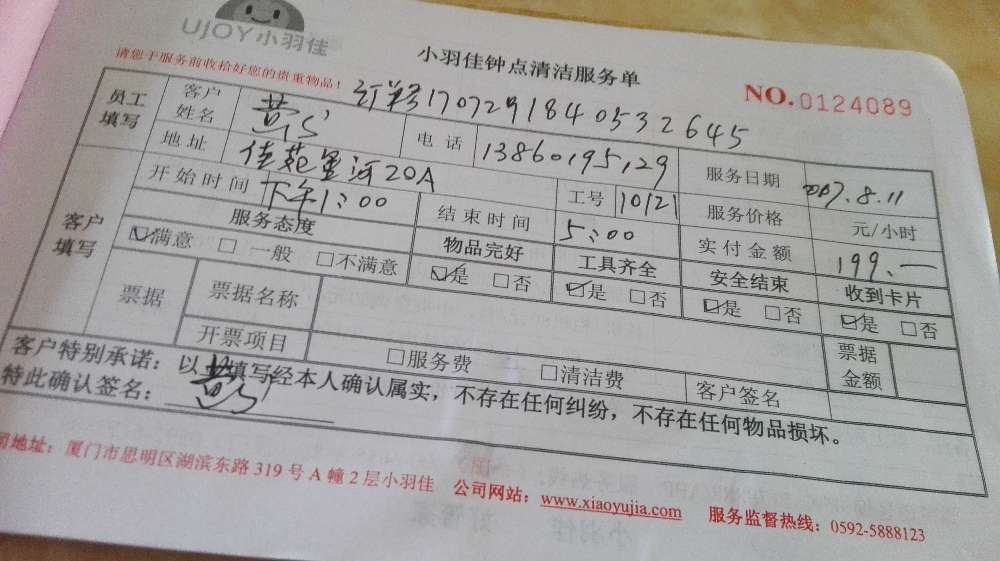 UJOY小羽佳
小羽佳钟点清洁服务单
请您于服务前收拾好您的贵重物品！
NO.0124089
订单号170729184053 2645
员工填写 客户姓名 黄 电话 13860195129 服务日期 2017.8.11
地址 佳苑星河20A 工号 10121 服务价格 元/小时
客户填写 开始时间 下午1:00 结束时间 5:00 实付金额 199.—
服务态度 物品完好 工具齐全 安全结束 收到卡片
☑满意 □一般 □不满意 ☑是 □否 ☑是 □否 ☑是 □否 ☑是 □否
票据 票据名称 票据金额
开票项目 □服务费 □清洁费 客户签名
客户特别承诺：以上填写经本人确认属实，不存在任何纠纷，不存在任何物品损坏。
特此确认签名： 黄
司地址：厦门市思明区湖滨东路319号A幢2层小羽佳 公司网站：www.xiaoyujia.com 服务监督热线：0592-5888123